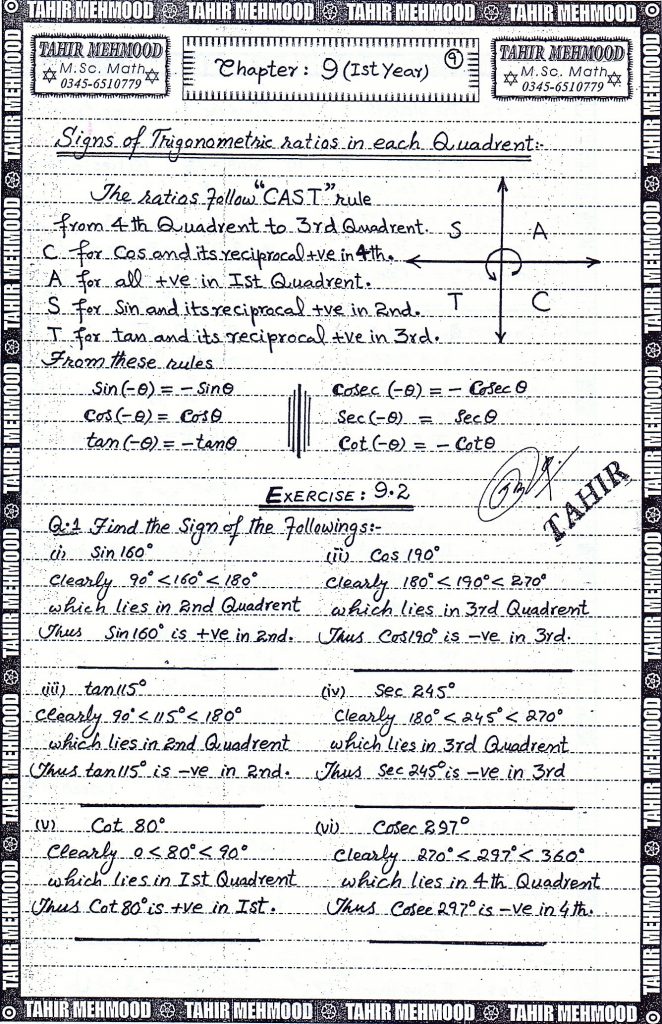 TAHIR MEHMOOD TAHIR MEHMOOD TAHIR MEHMOOD TAHIR MEHMOOD
TAHIR MEHMOOD
M.Sc. Math
0345-6510779
Chapter : 9 (Ist Year)
9
TAHIR MEHMOOD
M.Sc. Math
0345-6510779
Signs of Trigonometric ratios in each Quadrent:-
The ratios follow "CAST" rule
from 4th Quadrent to 3rd Quadrent.
C for Cos and its reciprocal +ve in 4th.
A for all +ve in Ist Quadrent.
S for Sin and its reciprocal +ve in 2nd.
T for tan and its reciprocal +ve in 3rd.
S A
T C
From these rules
Sin(-θ) = - Sinθ Cosec (-θ) = - Cosec θ
Cos(-θ) = Cosθ Sec(-θ) = Sec θ
tan(-θ) = -tanθ Cot(-θ) = - Cotθ
TAHIR
EXERCISE : 9.2
Q.1 Find the Sign of the followings:-
(i) Sin 160° (ii) Cos 190°
Clearly 90° < 160° < 180° Clearly 180° < 190° < 270°
which lies in 2nd Quadrent which lies in 3rd Quadrent
Thus Sin160° is +ve in 2nd. Thus Cos190° is -ve in 3rd.
(iii) tan115° (iv) Sec 245°
Clearly 90° < 115° < 180° Clearly 180° < 245° < 270°
which lies in 2nd Quadrent which lies in 3rd Quadrent
Thus tan115° is -ve in 2nd. Thus Sec 245° is -ve in 3rd
(v) Cot 80° (vi) Cosec 297°
Clearly 0 < 80° < 90° Clearly 270° < 297° < 360°
which lies in Ist Quadrent which lies in 4th Quadrent
Thus Cot 80° is +ve in Ist. Thus Cosec 297° is -ve in 4th.
TAHIR MEHMOOD TAHIR MEHMOOD TAHIR MEHMOOD TAHIR MEHMOOD
TAHIR MEHMOOD TAHIR MEHMOOD TAHIR MEHMOOD TAHIR MEHMOOD TAHIR MEHMOOD TAHIR MEHMOOD
TAHIR MEHMOOD TAHIR MEHMOOD TAHIR MEHMOOD TAHIR MEHMOOD TAHIR MEHMOOD TAHIR MEHMOOD